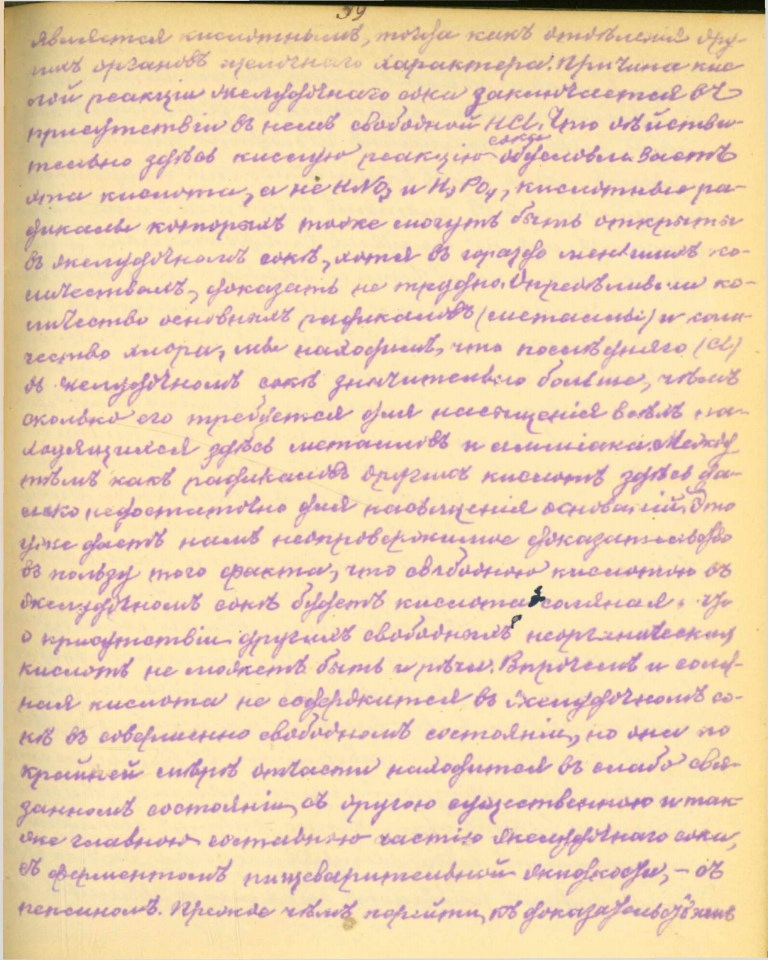 39
является кислотнымъ, тогда какъ отдѣленія дру-
гихъ органовъ щелочного характера. Причина кис
лой реакціи желудочнаго сока заключается въ
присутствіи въ немъ свободной HCl. Что дѣйстви-
тельно здѣсь кислую реакцію сока обусловливаетъ
эта кислота, а не HNO3 и H3PO4, кислотные ра-
дикалы которыхъ тоже могутъ быть открыты
въ желудочномъ сокѣ, хотя въ гораздо меньшихъ ко-
личествахъ, доказать не трудно. Опредѣливши ко-
личество основныхъ радикаловъ (металлы) и коли-
чество хлора, мы находимъ, что послѣдняго (Cl)
въ желудочномъ сокѣ значительно больше, чѣмъ
сколько его требуется для насыщенія всѣхъ на-
ходящихся здѣсь металловъ и амміака. Между
тѣмъ какъ радикаловъ другихъ кислотъ здѣсь да-
леко недостаточно для насыщенія основаній. Это
уже даетъ намъ неопровержимое доказательство
въ пользу того факта, что свободною кислотою въ
желудочномъ сокѣ будетъ кислота соляная.
о присутствіи другихъ свободныхъ неорганическихъ
кислотъ не можетъ быть и рѣчи. Впрочемъ и соля-
ная кислота не содержится въ желудочномъ со-
кѣ въ совершенно свободномъ состояніи, но она по
крайней мѣрѣ отчасти находится въ слабо свя-
занномъ состояніи съ другою существенною и так-
же главною составною частію желудочнаго сока,
съ ферментомъ пищеварительной жидкости, – съ
пепсиномъ. Прежде чѣмъ перейти къ доказательствамъ